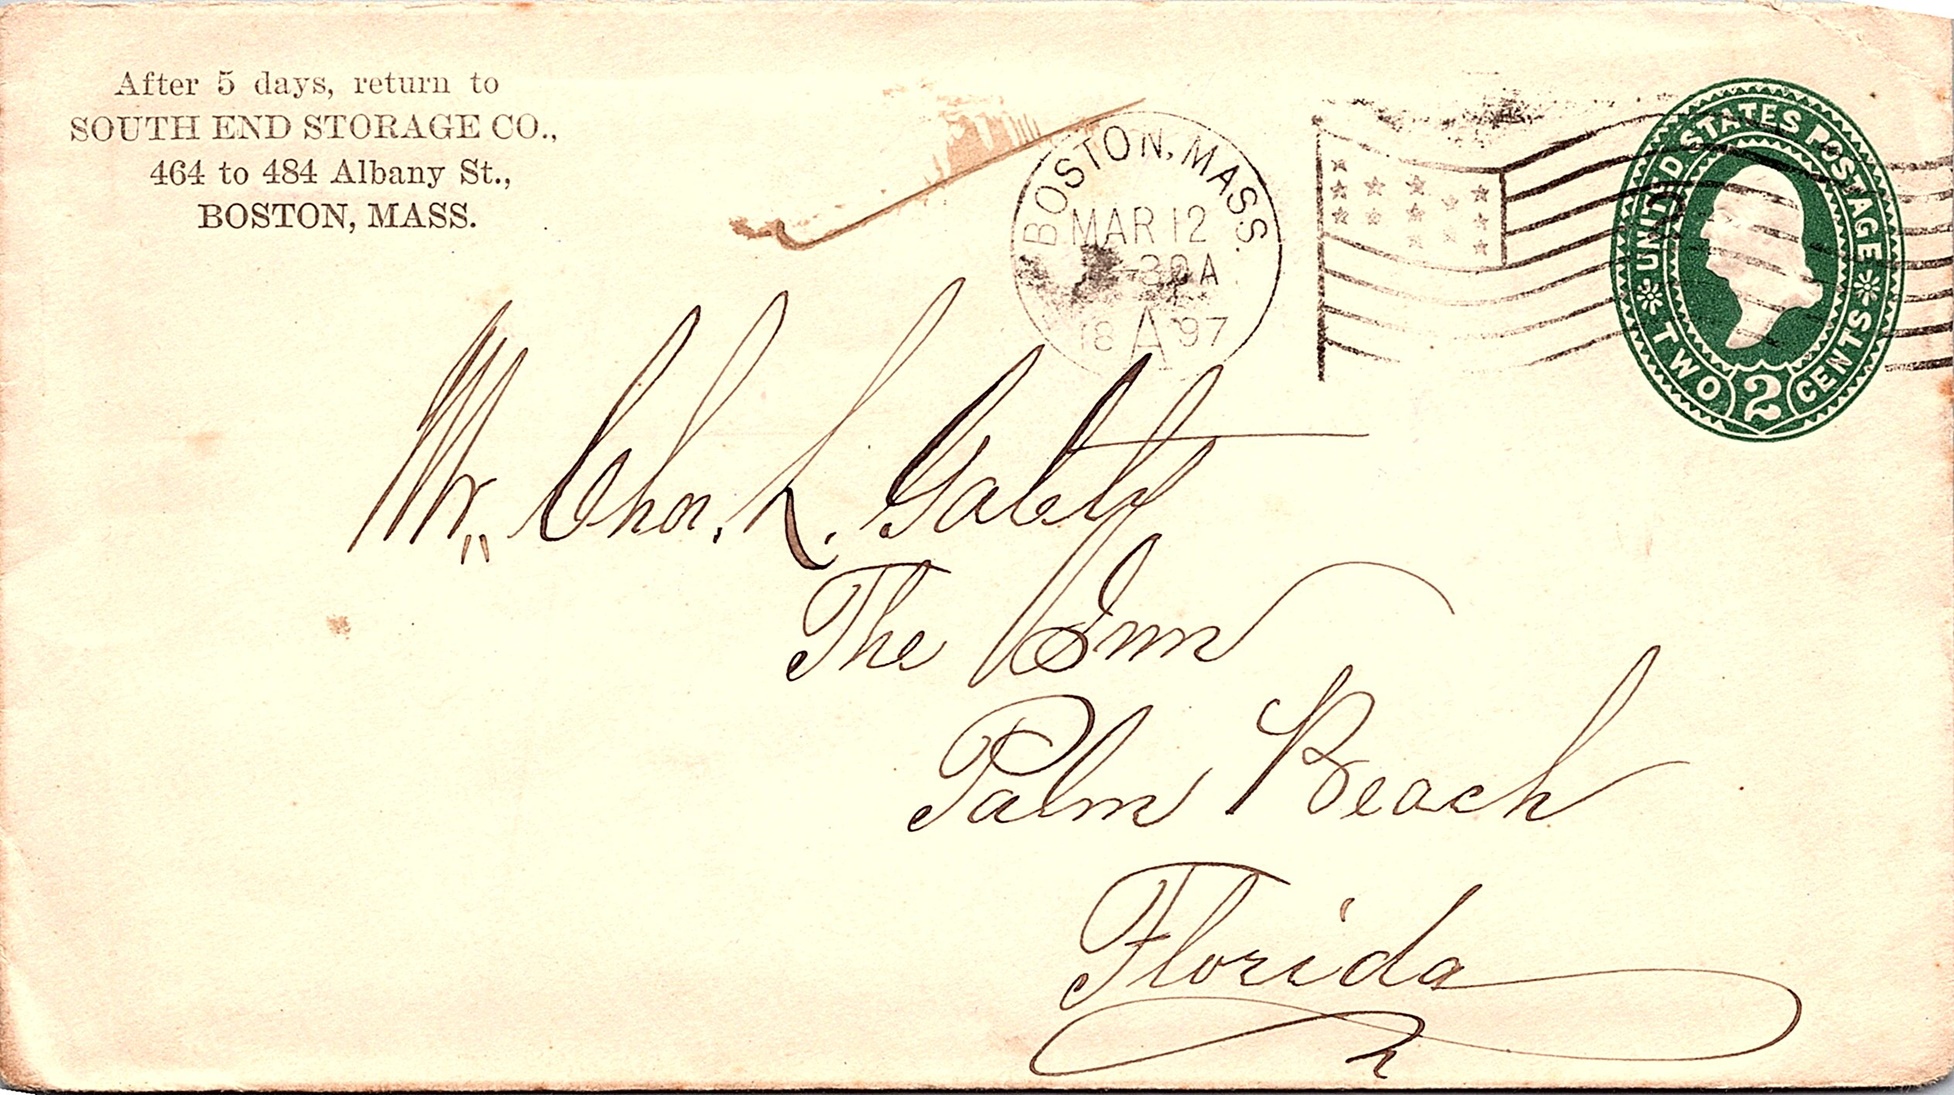 After 5 days, return to
SOUTH END STORAGE CO.,
464 to 484 Albany St.,
BOSTON, MASS.
BOSTON, MASS.
MAR 12
30 A
18 A 97
UNITED STATES POSTAGE
TWO 2 CENTS
Mr. Chas. L.
The Inn
Palm Beach
Florida